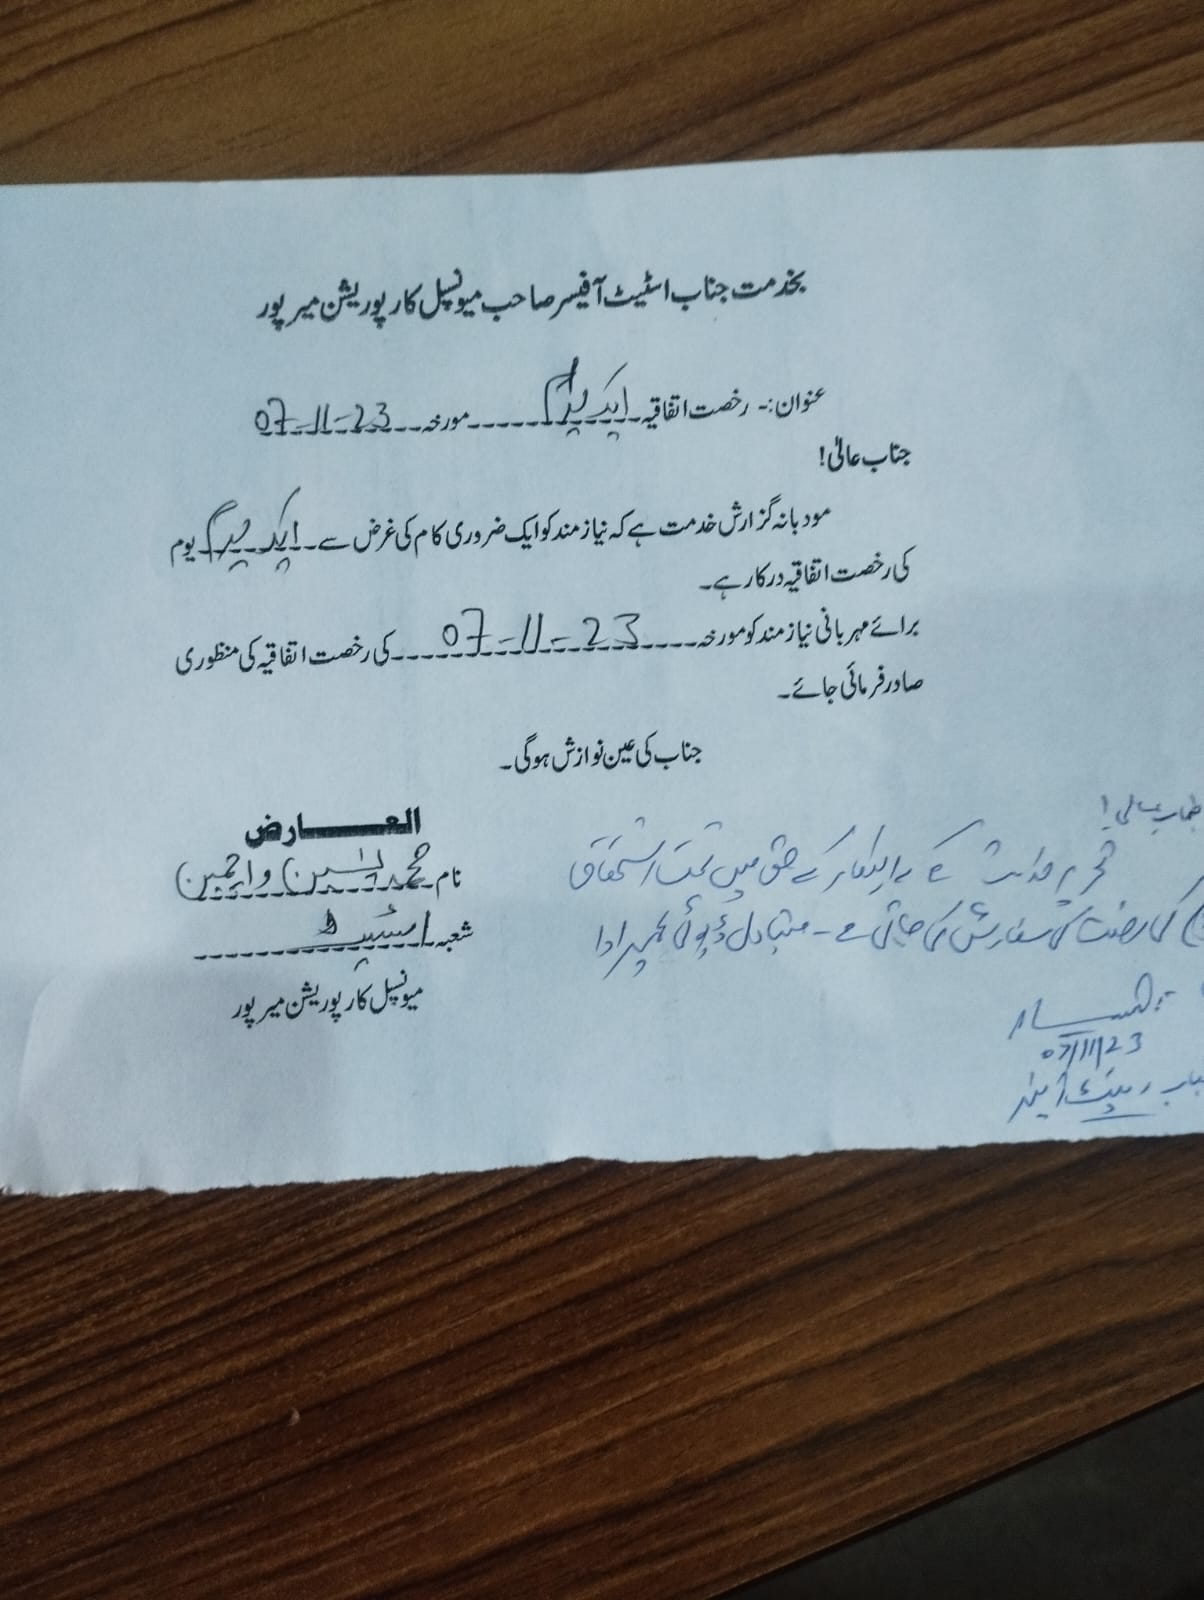 بخدمت جناب اسٹیٹ آفیسر صاحب میونسپل کارپوریشن میرپور
عنوان:۔ رخصت اتفاقیہ ایک یوم مورخہ 07-11-23
جناب عالیٰ!
مودبانہ گزارش خدمت ہے کہ نیازمند کو ایک ضروری کام کی غرض سے ایک یوم یوم
کی رخصت اتفاقیہ درکار ہے۔
برائے مہربانی نیازمند کو مورخہ 07-11-23 کی رخصت اتفاقیہ کی منظوری
صادر فرمائی جائے۔
جناب کی عین نوازش ہوگی۔
العارض
نام محمد یٰسین واچمین
شعبہ اسٹیٹ
میونسپل کارپوریشن میرپور
جناب عالی!
تحریر خدمت ہے اہلکار کے حق میں تحت استحقاق
کی رخصت کی سفارش کی جاتی ہے۔ متبادل ڈیوٹی ادا
07/11/23